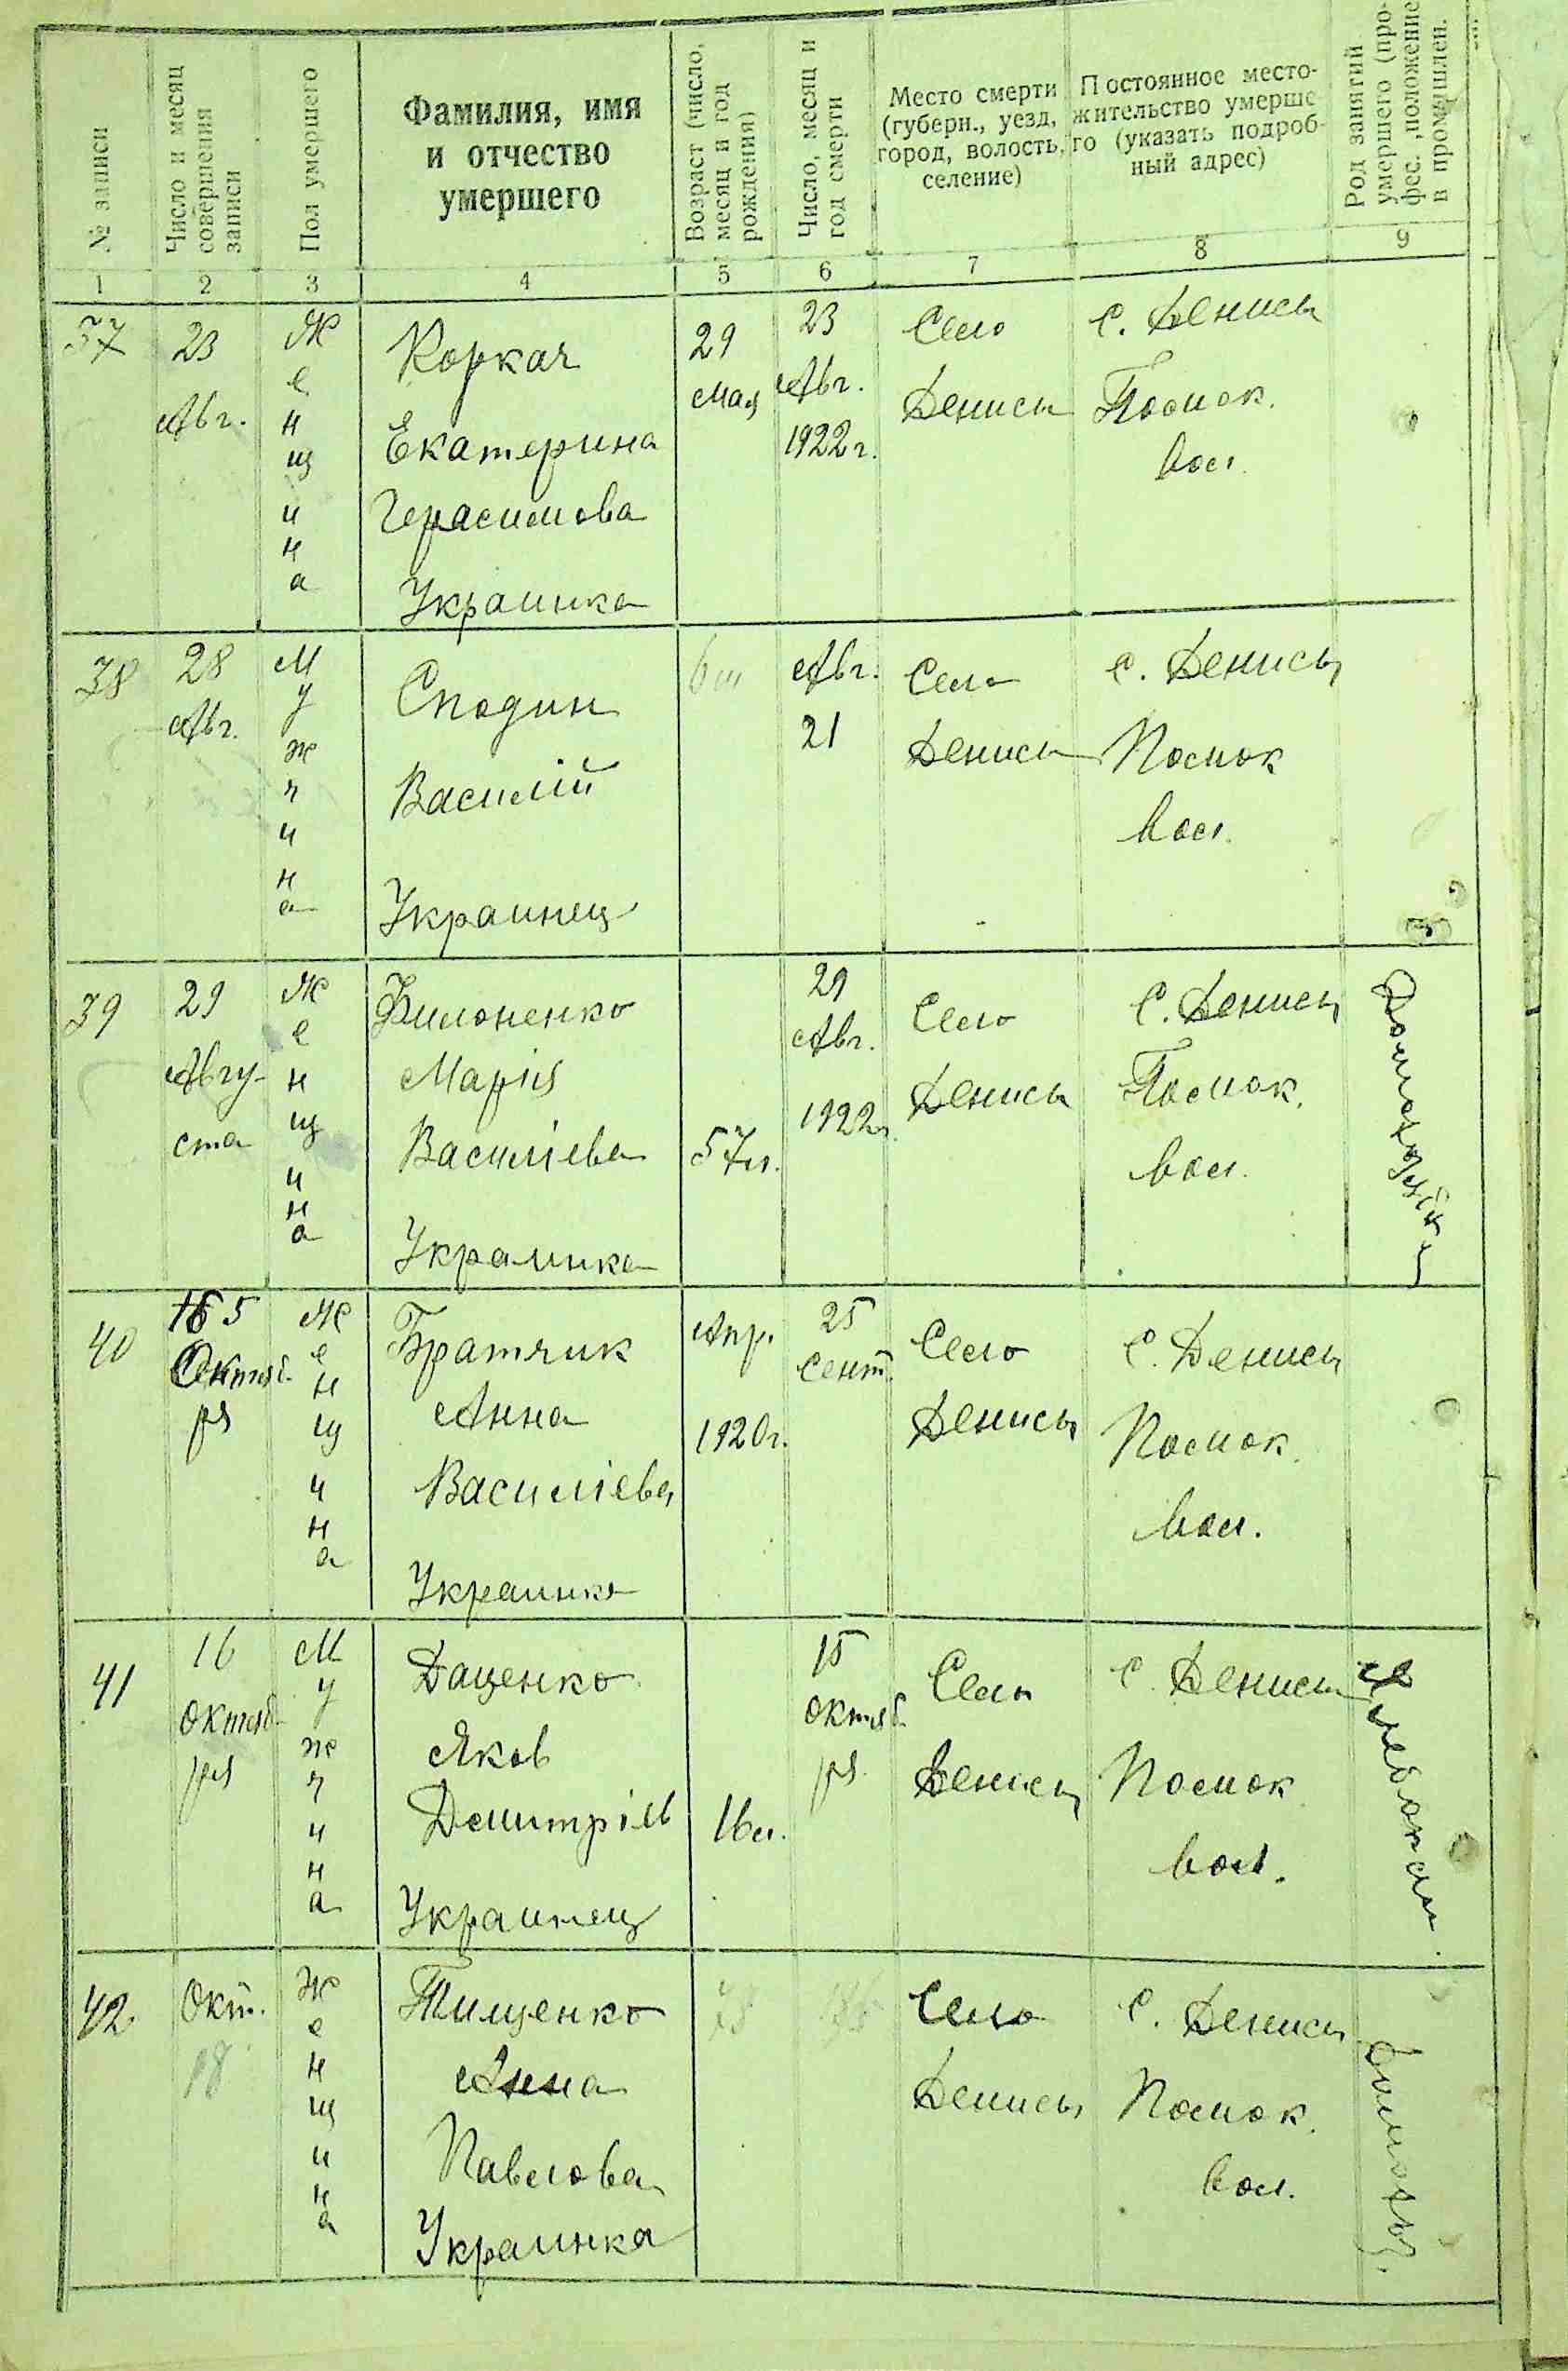 № записи
Число и месяц
совершения
записи
Пол умершего
Фамилия, имя
и отчество
умершего
Возраст (число,
месяц и год
рождения)
Число, месяц и
год смерти
Место смерти
(губерн., уезд,
город, волость,
селение)
Постоянное место-
жительство умерше-
го (указать подроб-
ный адрес)
Род занятий
умершего (про-
фес. ,положение
в промышлен.
1 2 3 4 5 6 7 8 9
37
23
Авг.
Женщина
Коркач
Екатерина
Герасимова
Украинка
29
мая
23
Авг.
1922 г.
Село
Денисы
С. Денисы
Помок.
вол.
38
28
Авг.
Мужчина
Сподин
Василій
Украинец
6 м
Авг.
21
Село
Денисы
с. Денисы
Помок
вол.
39
29
Авгу-
ста
Женщина
Филоненко
Марія
Василіева
Украинка
57 л.
29
Авг.
1922 г.
Село
Денисы
С. Денисы
Помок.
вол.
40
5
Октяб-
ря
Женщина
Братчик
Анна
Василіева
Украинка
Апр.
1920 г.
25
Сент.
Село
Денисы
С. Денисы
Помок.
вол.
41
16
октяб-
ря
Мужчина
Даценко
Яков
Дмитріев
Украинец
16 л.
15
октяб-
ря.
Село
Денисы
С. Денисы
Помок
вол.
Хлебопаш.
42
Окт.
18
Женщина
Тищенко
Анна
Павлова
Украинка
Село
Денисы
С. Денисы
Помок.
вол.